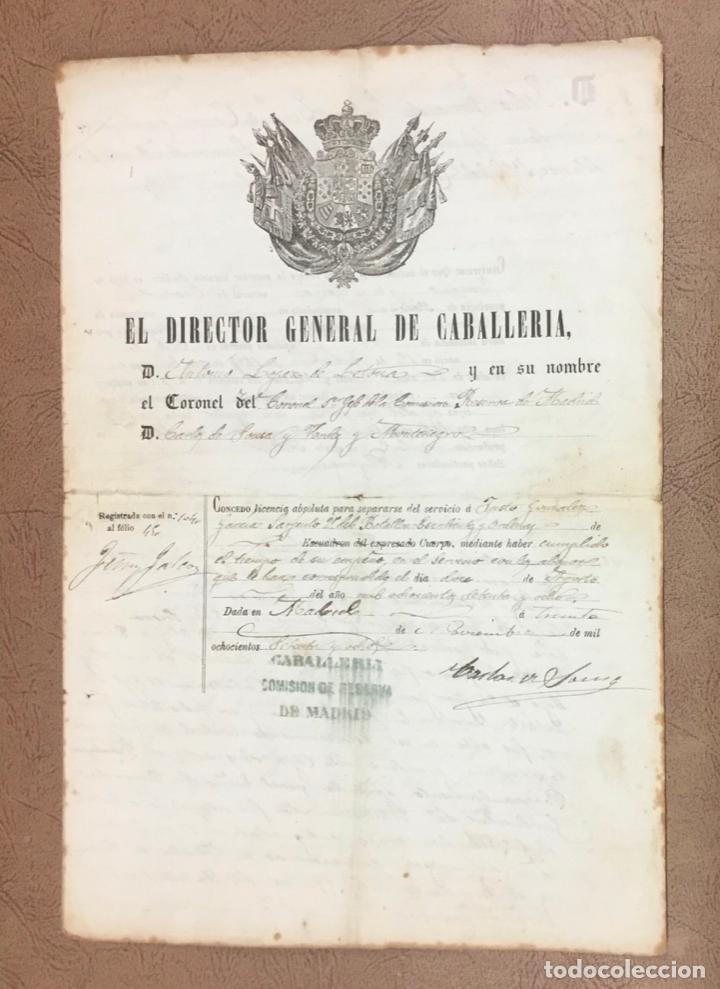 EL DIRECTOR GENERAL DE CABALLERIA,
D. Antonio Lopez de Letona y en su nombre
el Coronel del Coronel 1er Gefe de la Comision Reserva de Madrid
D. Carlos de Sousa y y Montenegro
Registrada con el n.º
al fólio 45
CONCEDO licencia absoluta para separarse del servicio á Gonzalez
Garcia Sargento 2º del Batallon Escribientes y Ordenzas de
Escuadron del expresado Cuerpo, mediante haber cumplido
el tiempo de su empeño en el servicio con los abonos
que le han correspondido el dia doce de Agosto
del año mil ochocientos setenta y ocho
Dada en Madrid á treinta
de Noviembre de mil
ochocientos setenta y ocho
Carlos de Sousa
CABALLERIA
COMISION DE RESERVA
DE MADRID
todocoleccion
todocoleccion.net